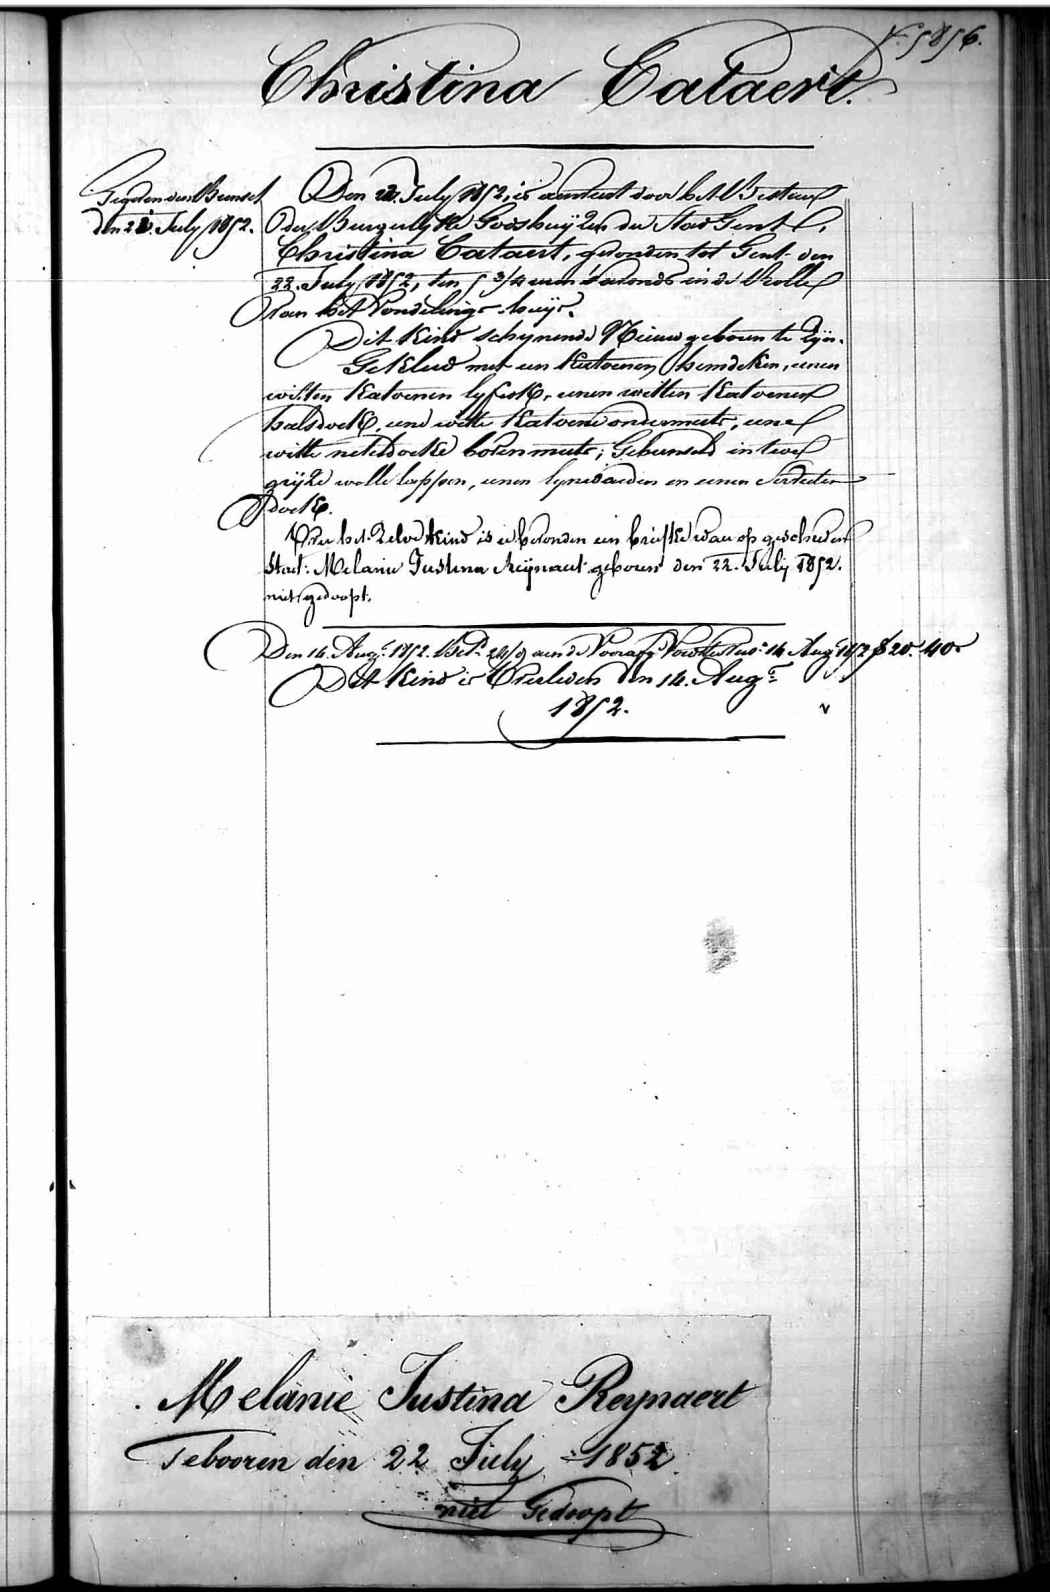 N.º 5856.
Christina Cataert.
den 22. July 1852.
Den 22. July 1852, is aenveert door het Bestuur
der Burgerlyke Godshuyzen der Stad Gent,
Christina Cataert, gevonden tot Gent den
22. July 1852, ten 5 3/4 uren 's avonds in de Rolle
van het Vondelings-huys.
Dit Kind schynende Nieuwgeboren te zyn.
Gekleed met een Katoenen hemdeken, eenen
witten Katoenen lyfrok, eenen witten Katoenen
halsdoek, eene witte Katoene ondermuts, eene
witte neteldoeke bovenmuts; Gebunseld in twee
gryze wolle lappen, eenen lynwaeden en eenen
doek.
Over het zelve Kind is er bevonden een briefke waer op geschreven
staet: Melanie Justina Reynaert geboren den 22. July 1852.
niet gedoopt.
Den 14. Aug.t 1852. 14 Aug.t 1852 20. 40
Dit Kind is Overleden den 14. Aug.t
1852.
Melanie Justina Reynaert
Gebooren den 22 July 1852
niet Gedoopt